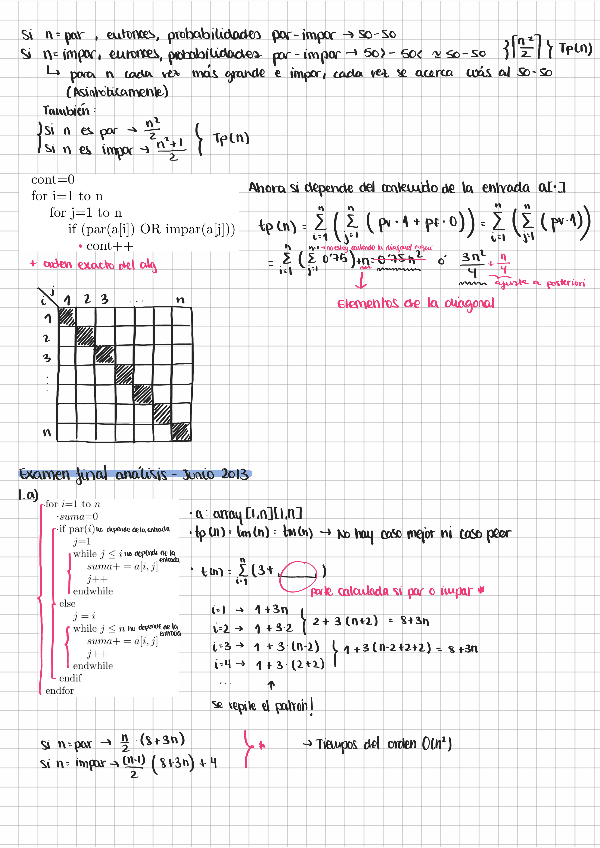 Si n=par, entonces, probabilidades par-impar → 50-50
Si n=impar, entonces, probabilidades par-impar → 50> - 50< ≈ 50-50 } ⌈n²/2⌉ } Tp(n)
↳ para n cada vez más grande e impar, cada vez se acerca más al 50-50
(Asintóticamente)
También:
Si n es par → n²/2
Si n es impar → (n²+1)/2 } Tp(n)
cont=0
for i=1 to n
for j=1 to n
if (par(a[i]) OR impar(a[j]))
• cont++
+ orden exacto del alg
Ahora si depende del contenido de la entrada a[·]
tp(n) = Σ(i=1..n) ( Σ(j=1..n) (pv·1 + pf·0)) = Σ(i=1..n) ( Σ(j=1..n) (pv·1))
= Σ(i=1..n) ( Σ(j=1) 0'75) + n = 0'75n² ó 3n²/4 + n/4
ajuste a posteriori
Elementos de la diagonal
j
i 1 2 3 ... n
1
2
3
:
n
Examen final análisis - Junio 2013
1.a)
for i=1 to n
suma=0
if par(i) no depende de la entrada
j=1
while j ≤ i no depende de la entrada
suma+ = a[i,j]
j++
endwhile
else
j = i
while j ≤ n no depende de la entrada
suma+ = a[i,j]
j++
endwhile
endif
endfor
• a: array [1,n][1,n]
• tp(n) = tm(n) = tM(n) → No hay caso mejor ni caso peor
• t(n) = Σ(i=1..n) (3+ ____ )
parte calculada si par o impar *
i=1 → 1+3n
i=2 → 1+3·2 } 2+3(n+2) = 8+3n
i=3 → 1+3·(n-2)
i=4 → 1+3·(2+2) } 1+3(n-2+2+2) = 8+3n
... ↑
Se repite el patrón!
Si n=par → n/2 · (8+3n)
Si n=impar → (n-1)/2 (8+3n) + 4 } *
→ Tiempos del orden O(n²)